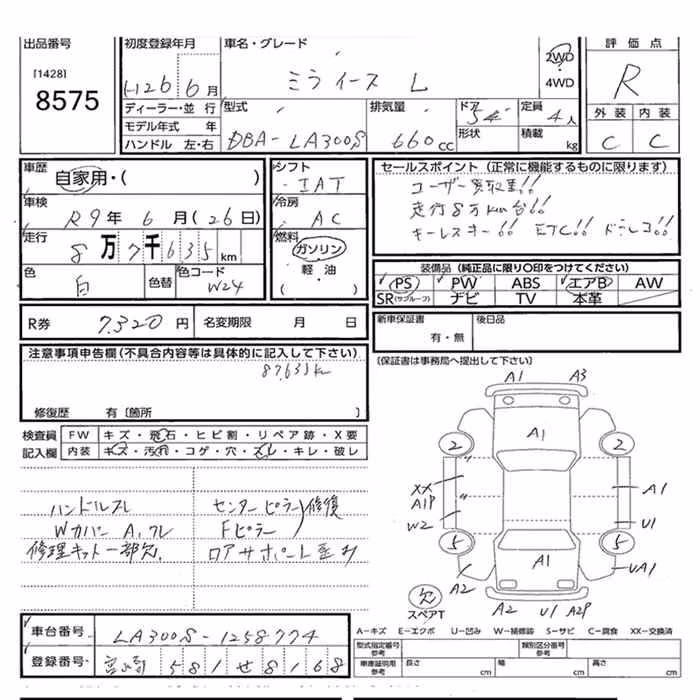 出品番号
[1428]
8575
初度登録年月
H26年6月
ディーラー・並行
モデル年式 年
ハンドル 左・右
車名・グレード
ミライース L
2WD
4WD
型式
DBA-LA300S
排気量
660cc
ドア
5ド
形状
定員
4人
積載
kg
評価点
R
外装 内装
C C
車歴
自家用・( )
車検
R9年 6月(26日)
走行
8万7千635km
色
白
色替
色コード
W24
シフト
IAT
冷房
AC
燃料
ガソリン
軽・油
( )
セールスポイント (正常に機能するものに限ります)
ユーザー買取車!!
走行8万km台!!
キーレスキー!! ETC!! ドラレコ!!
装備品 (純正品に限り○印をつけてください)
PS PW ABS エアB AW
SR(サンルーフ) ナビ TV 本革
R券 7,320円 名変期限 月 日
新車保証書
有・無
後日品
[保証書は事務局へ提出して下さい]
注意事項申告欄(不具合内容等は具体的に記入して下さい)
87,635km
修復歴 有〔箇所 〕
検査員
記入欄
FW キズ・飛石・ヒビ割・リペア跡・X要
内装 キズ・汚れ・コゲ・穴・スレ・キレ・破レ
ハンドルスレ
Wカバー A,ワレ
修理キット一部欠.
センターピラー)修復
Fピラー
ロアサポート歪み
A1 A3
A1
2 2
XX
A1P
W2
A1
U1
5 5
A1
A2
UA1
欠
スペアT
A2 U1 A2P
A-キズ E-エクボ U-凹み W-補修跡 S-サビ C-腐食 XX-交換済
車台番号 LA300S-1258774
登録番号 宮崎 581 せ 8168
型式指定番号
参考
類別区分番号
参考
車庫証明用
参考
長さ cm
幅 cm
高さ cm